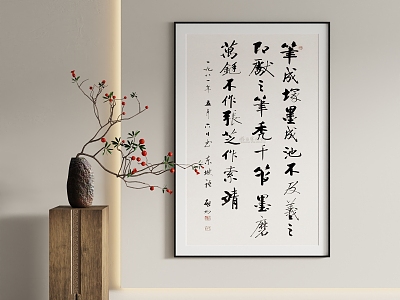 筆成塚墨成池不及羲之
即獻之筆禿千管墨磨
萬鋌不作張芝作索靖
一九八 年五月六日書東坡語 啟功